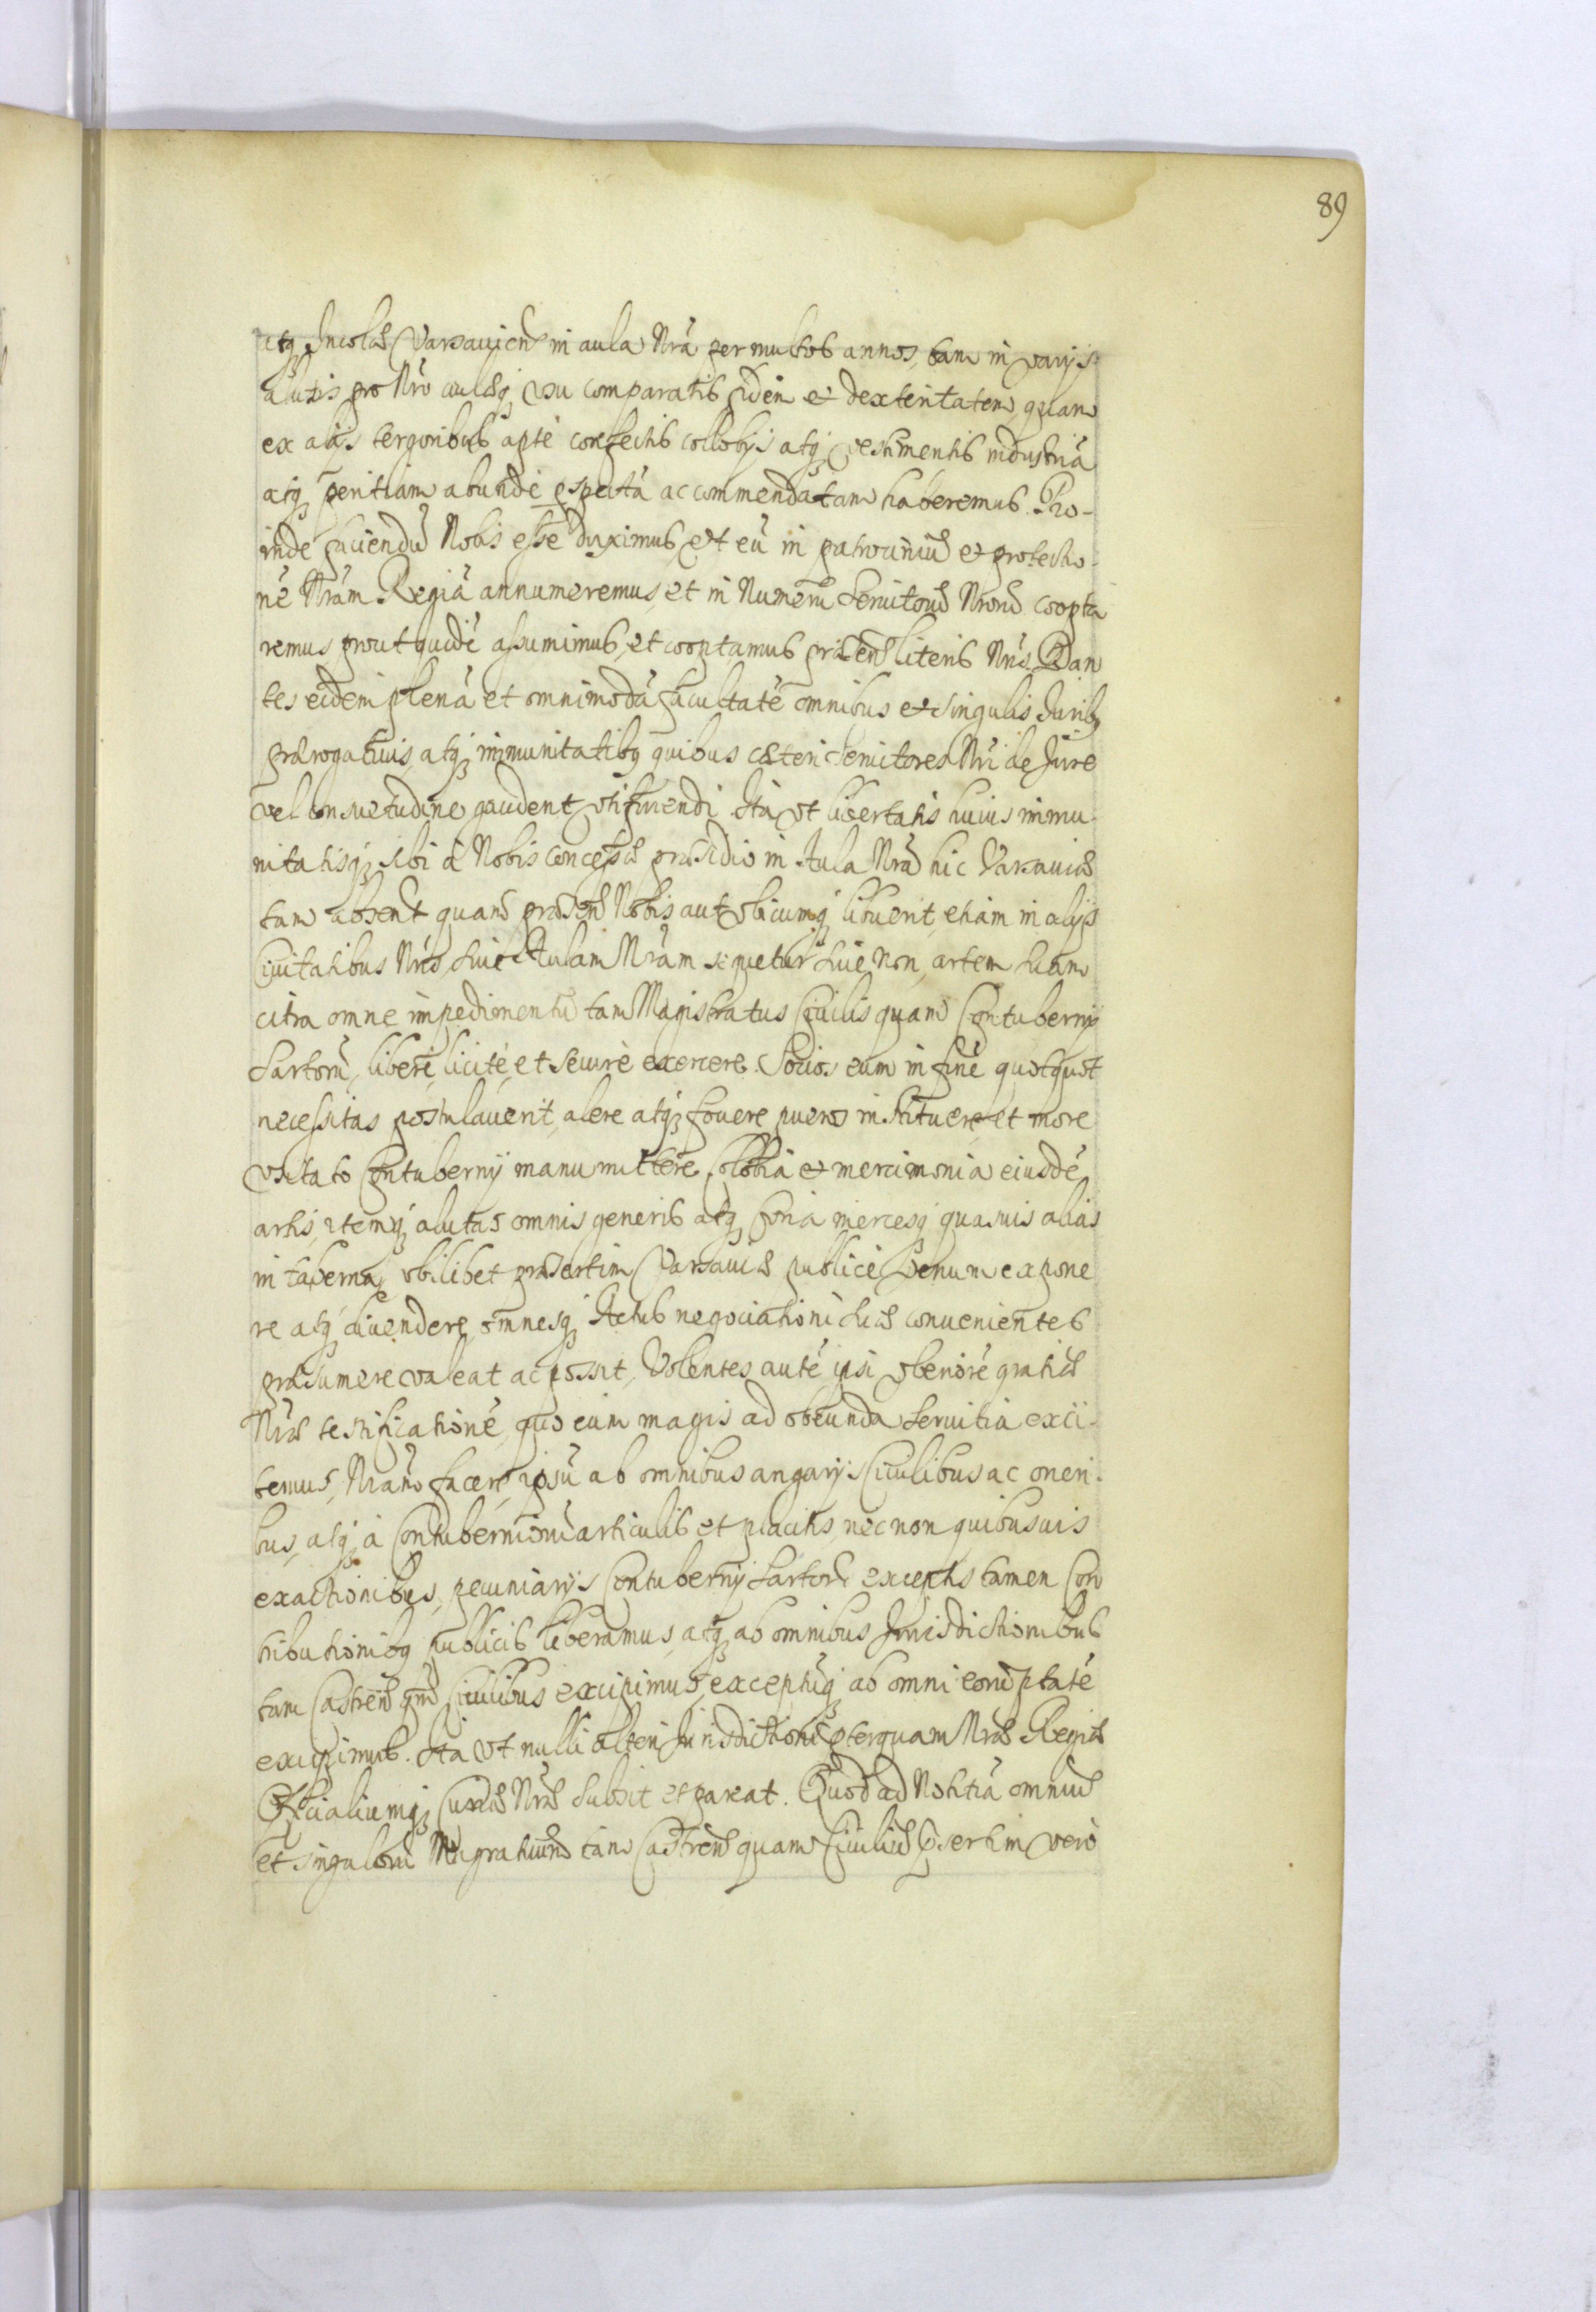 89
atq Incolæ Varsavien in aula Nrã per multos annos, tam in varijs
alutis pro Nro aulæq usu comparatis fidem et dexteritatem, quam
ex alijs tergoribus aptè confectis collobijs atq vestimentis industriã
atq peritiam abundè pspectã ac commendatam haberemus. Pro-
inde faciendũ Nobis esse duximus, ut eũ in patrociniũ et protectio-
nẽ Nram Regiã annumeremus, et in Numerũ Servitorũ Nrorũ coopta
remus prout quidẽ assumimus, et cooptamus præsen literis Nris. Dan
tes eidem plenã et omnimodã facultatẽ omnibus et singulis Juribq
prærogativis, atq immunitatibq quibus cæteri Servitores Nri de Jure
vel consuetudine gaudent utifruendi. Ita ut libertatis huius immu-
nitatisq sibi à Nobis concessæ præsidio in Aula Nrã hic Varsaviæ
tam absent quam præsen Nobis aut ubicumq libuerit, etiam in alijs
Civitatibus Nris, sive Aulam Nram sequetur sive non, artem suam
citra omne impedimentũ tam Magistratus Civilis quam Contubernij
Sartorũ, liberè, licitè, et securè exercere. Socios eum in finẽ quotquot
necessitas postulaverit, alere atq fovere pueros instituere et more
usitato Contubernij manumittere, collobia et mercimonia eiusdẽ
artis, itemq alutas omnis generis atq coria mercesq quasvis alias
in taberna, ubilibet præsertim Varsaviæ publicè venum expone
re atq divendere, omnesq Actus negociationi suæ convenientes
præsumere valeat ac possit, Volentes autẽ ipsi uberiorẽ gratiæ
Nræ testificationẽ, quo eum magis ad obeunda servitia exci-
temus, Nram facere, ipsũ ab omnibus angarijs Civilibus ac oneri-
bus, atq à Contuberniorũ articulis et placitis, necnon quibusvis
exactionibus, pecuniarijs Contubernij Sartorũ exceptis tamen Con
tributionibq publicis liberamus, atq ab omnibus Jurisdictionibus
tam Castren qm Civilibus excipimus, exceptũq ab omni eorũ ptatẽ
excipimus. Ita ut nulli alteri Jurisdictioni pterquam Nræ Regiæ
Officialiumq Curiæ Nræ subsit et pareat. Quod ad Notitiã omniũ
et singulorũ Magratuum tam Castren quam Civiliũ psertim verò